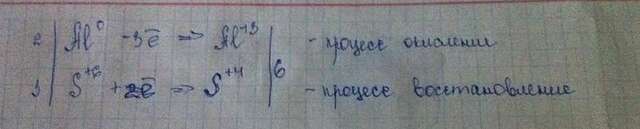 2 | Al⁰ -3ē => Al⁺³ | 6 - процесс окислении
3 | S⁺⁶ + 2ē => S⁺⁴ | - процесс восстановление